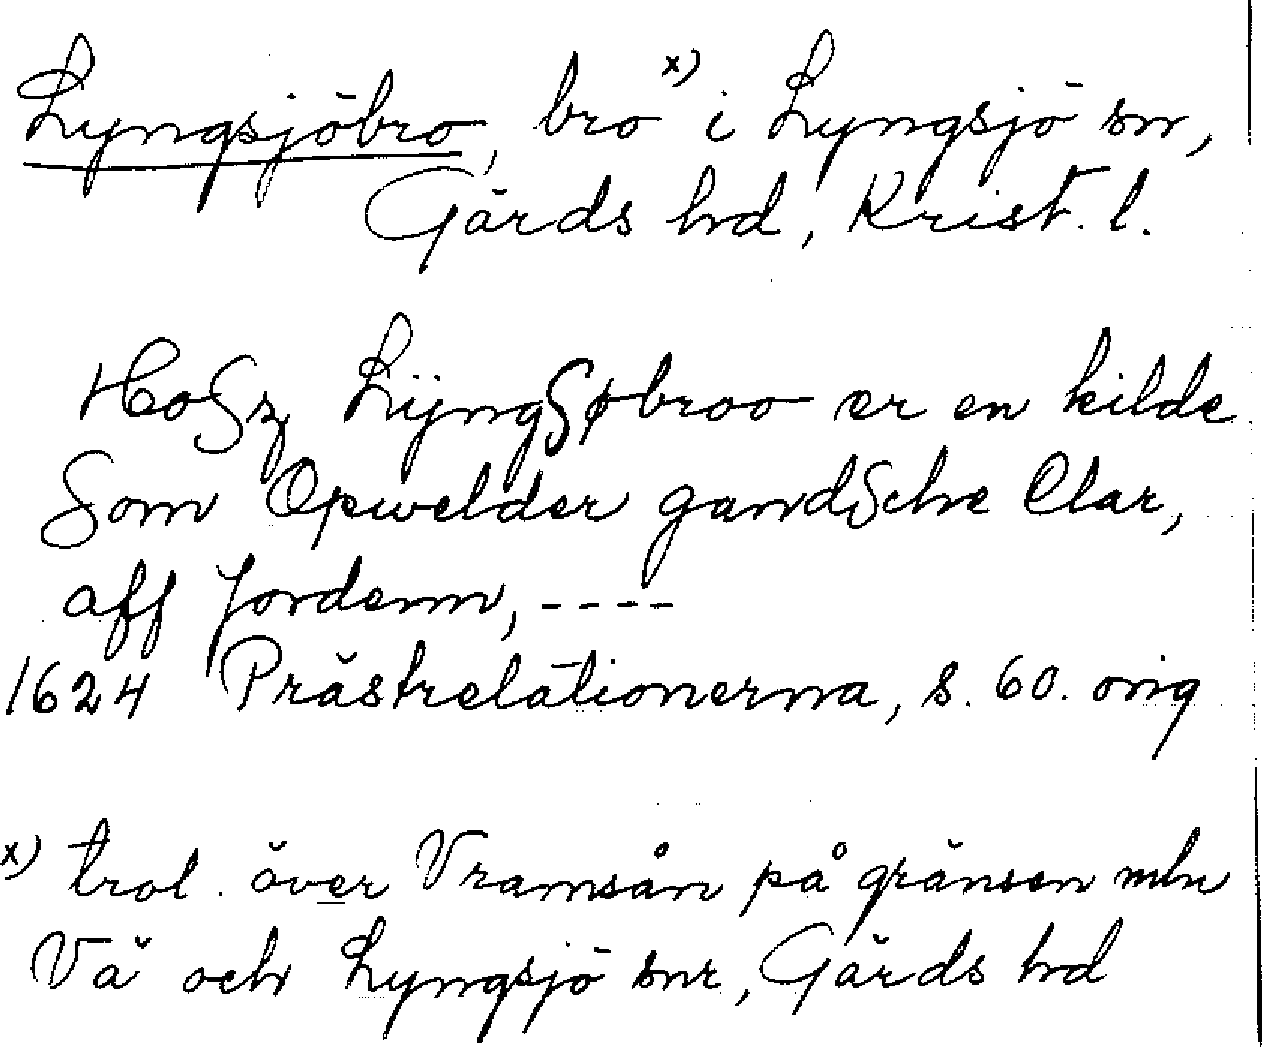 Lyngsjöbro, bro x) i Lyngsjö sn,
Gärds hd, Krist. l.
Hosz Lÿngsøbroo er en kilde
Som Opwelder gandsche Clar,
aff Jordenn, ----
1624 Prästrelationerna, s. 60. orig
x) trol. över Vramsån på gränsen mln
Vä och Lyngsjö snr, Gärds hd